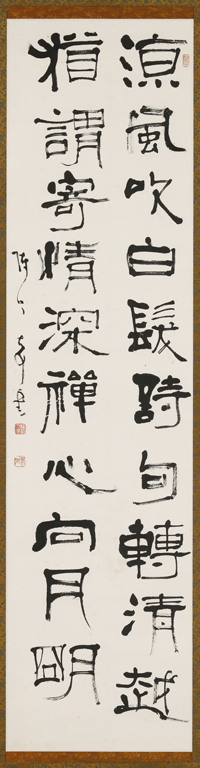 涼風吹白髮詩句轉清越
猶謂寄情深禪心向月明